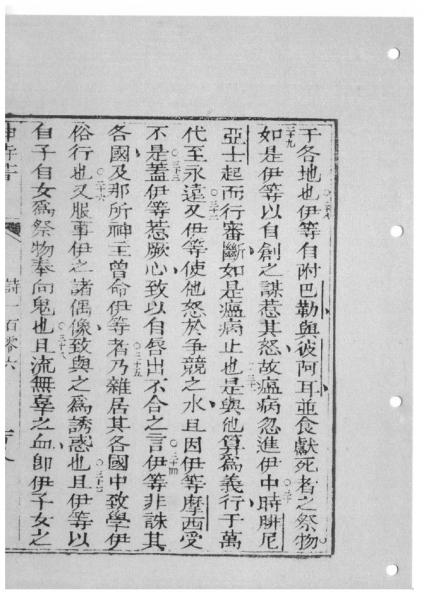 于各地也伊等自附巴勒與彼阿耳並食獻死者之祭物
如是伊等以自創之謀惹其怒故瘟病忽進伊中時腓尼
亞士起而行審斷如是瘟病止也是與他算爲義行于萬
代至永遠又伊等使他怒於争競之水且因伊等摩西受
不是蓋伊等惹厥心致以自唇出不合之言伊等非誅其
各國及那所神主曾命伊等者乃雜居其各國中致學伊
俗行也又服事伊之諸偶像致與之爲誘惑也且伊等以
自子自女爲祭物奉向鬼也且流無辜之血卽伊子女之
詩一百零六